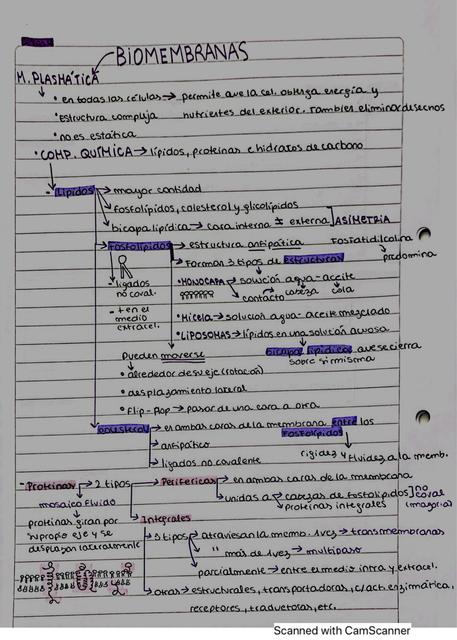 BIOMEMBRANAS
M. PLASMÁTICA
• en todas las células → permite que la cel. obtenga energía y
• estructura compleja nutrientes del exterior. Tambien eliminar desechos
• no es estática
• COMP. QUÍMICA → lípidos, proteínas e hidratos de carbono
- Lípidos → mayor cantidad
fosfolípidos, colesterol y glicolípidos
bicapa lipídica → cara interna ≠ externa] ASIMETRIA
Fosfolípidos → estructura antipática Fosfatidilcolina
Forman 3 tipos de estructuras predomina
- ligados no coval.
• MONOCAPA → solución agua-aceite
contacto cabeza cola
- + en el medio extracel.
• Micela → solución agua-aceite mezclado
• LIPOSOMAS → lípidos en una solución acuosa
bicapa lipídica que se cierra sobre si misma
Pueden moverse
• alrededor de su eje (rotación)
• desplazamiento lateral
• Flip-Flop → pasar de una cara a otra
colesterol → en ambas caras de la membrana entre los fosfolípidos
→ antipático
→ ligados no covalente rigidez y fluidez a la memb.
- Proteínas → 2 tipos → Periféricas → en ambas caras de la membrana
mosaico fluido unidas a → cabezas de fosfolípidos ] no coval
→ proteínas integrales (mayoría)
proteínas giran por su propio eje y se desplazan lateralmente
Integrales
→ 3 tipos → atraviesan la memb. 1 vez → transmembranas
" más de 1 vez → multipaso
parcialmente → entre el medio intra y extracel.
→ otras → estructurales, transportadoras, c/act. enzimática,
receptores, traductoras, etc.
Scanned with CamScanner